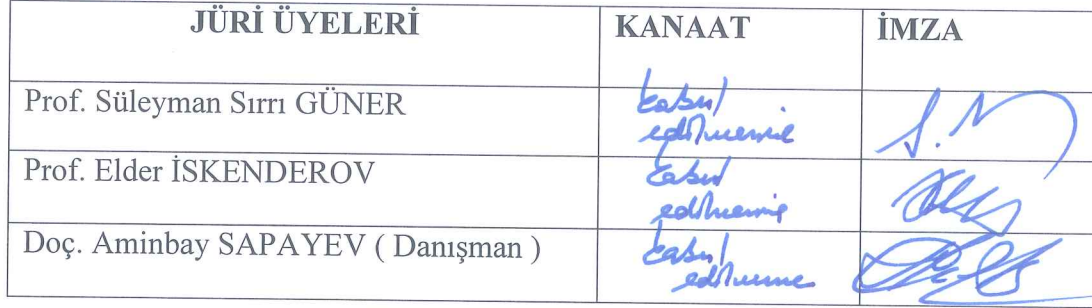 JÜRİ ÜYELERİ KANAAT İMZA
Prof. Süleyman Sırrı GÜNER kabul
edilmesine
Prof. Elder İSKENDEROV kabul
edilmesine
Doç. Aminbay SAPAYEV ( Danışman ) kabul
edilmesine